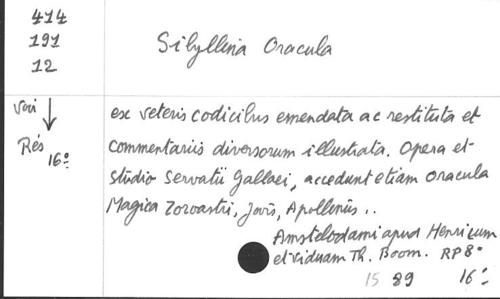 414
191
12
Sibyllina Oracula
voir
Rés
16º
ex veteris codicibus emendata ac restituta et
commentariis diversorum illustrata. Opera et
studio Servatii Gallaei, accedunt etiam Oracula
Magica Zoroastri, Jovis, Apollinis ..
Amstelodami apud Henricum
et viduam Th. Boom. RP 8º
15 89 16º